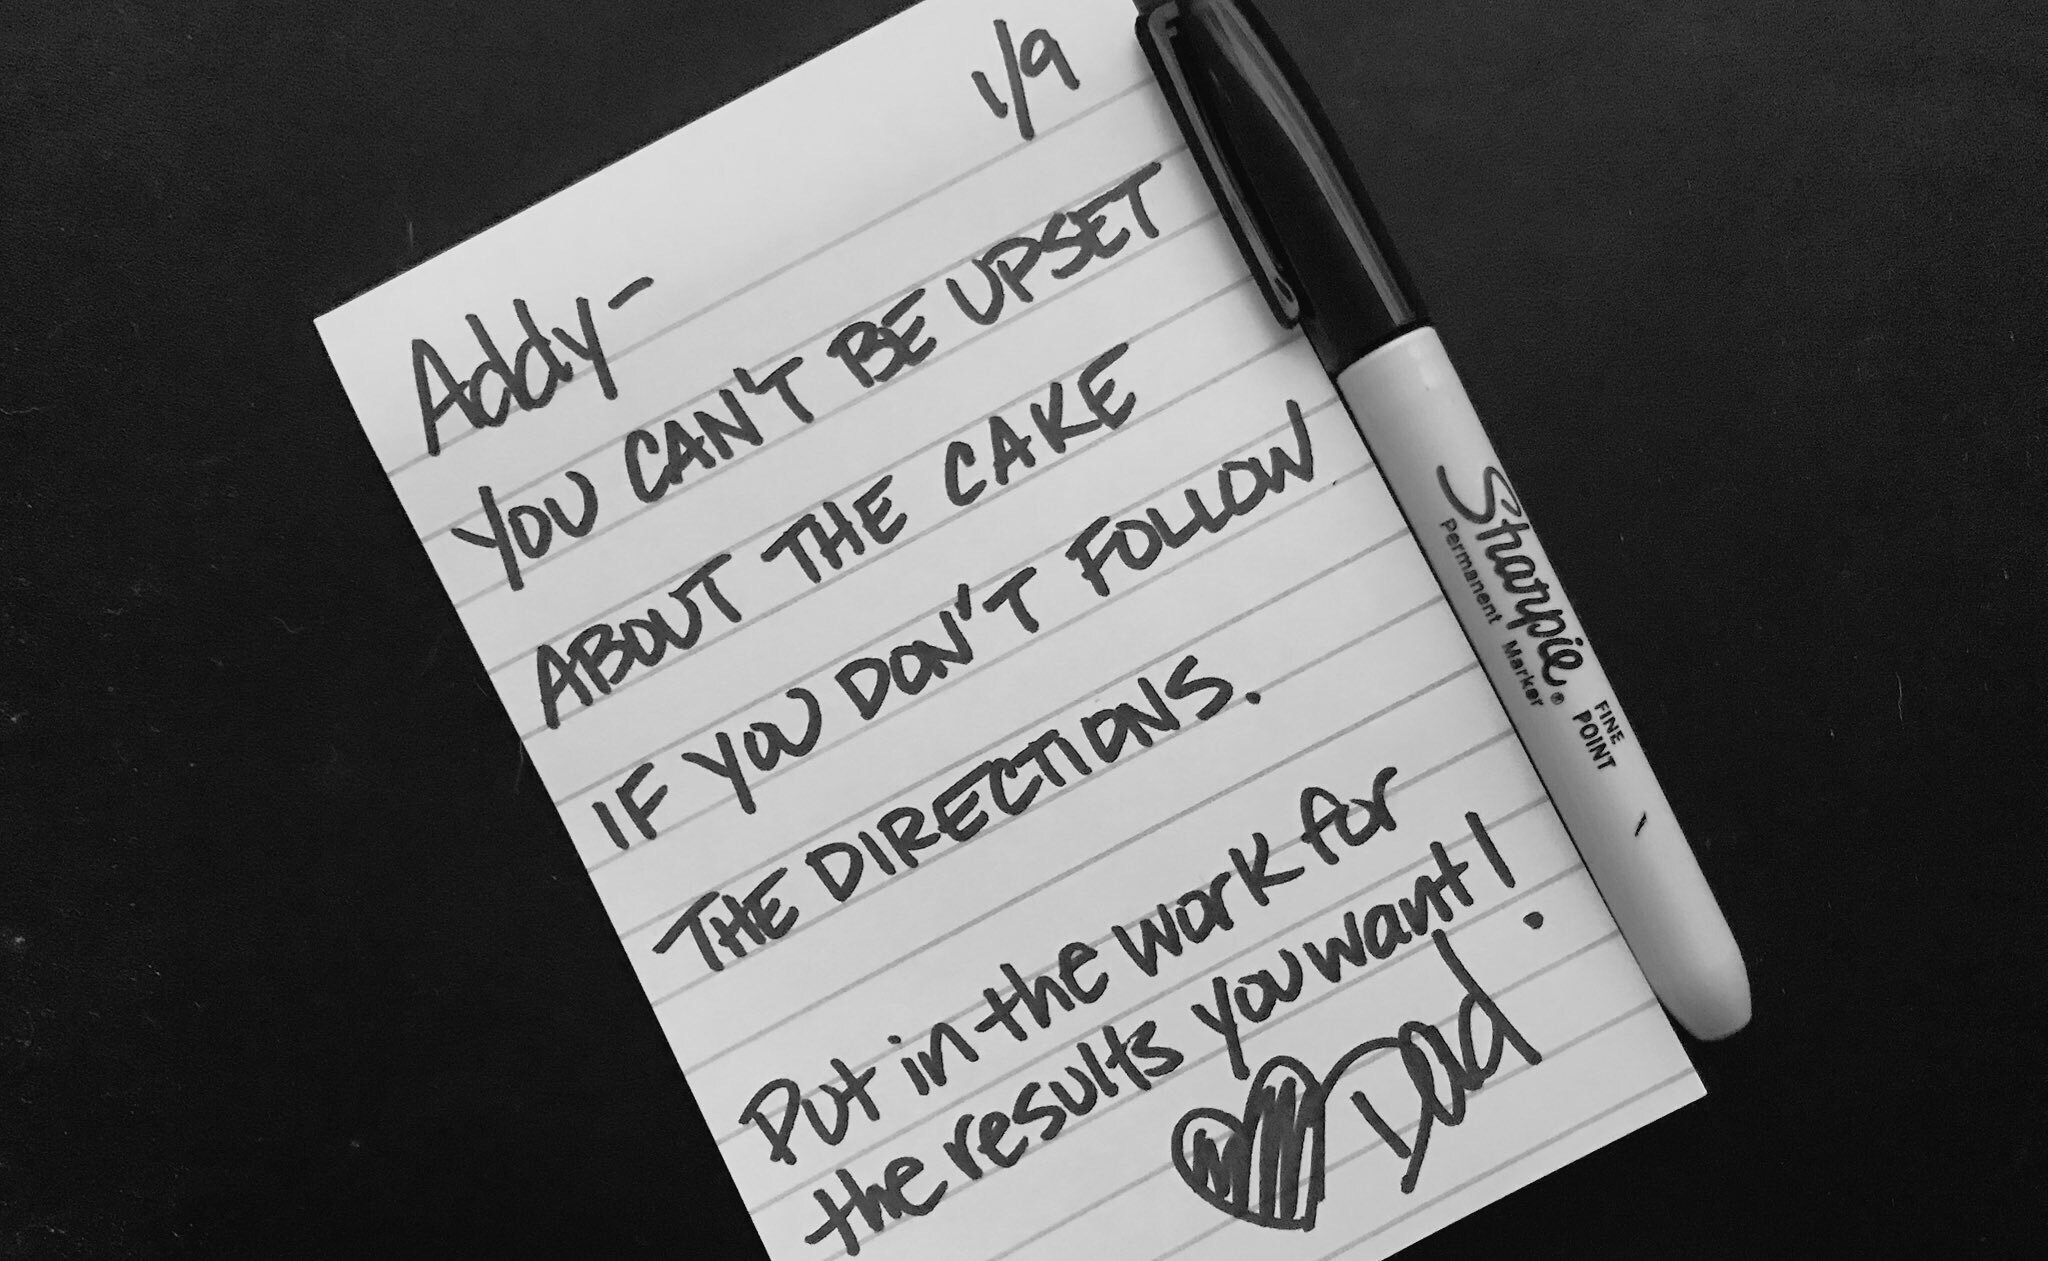 1/9
Addy-
YOU CAN'T BE UPSET
ABOUT THE CAKE
IF YOU DON'T FOLLOW
THE DIRECTIONS.
Put in the work for
the results you want!
Dad
Sharpie®
Permanent Marker
FINE
POINT